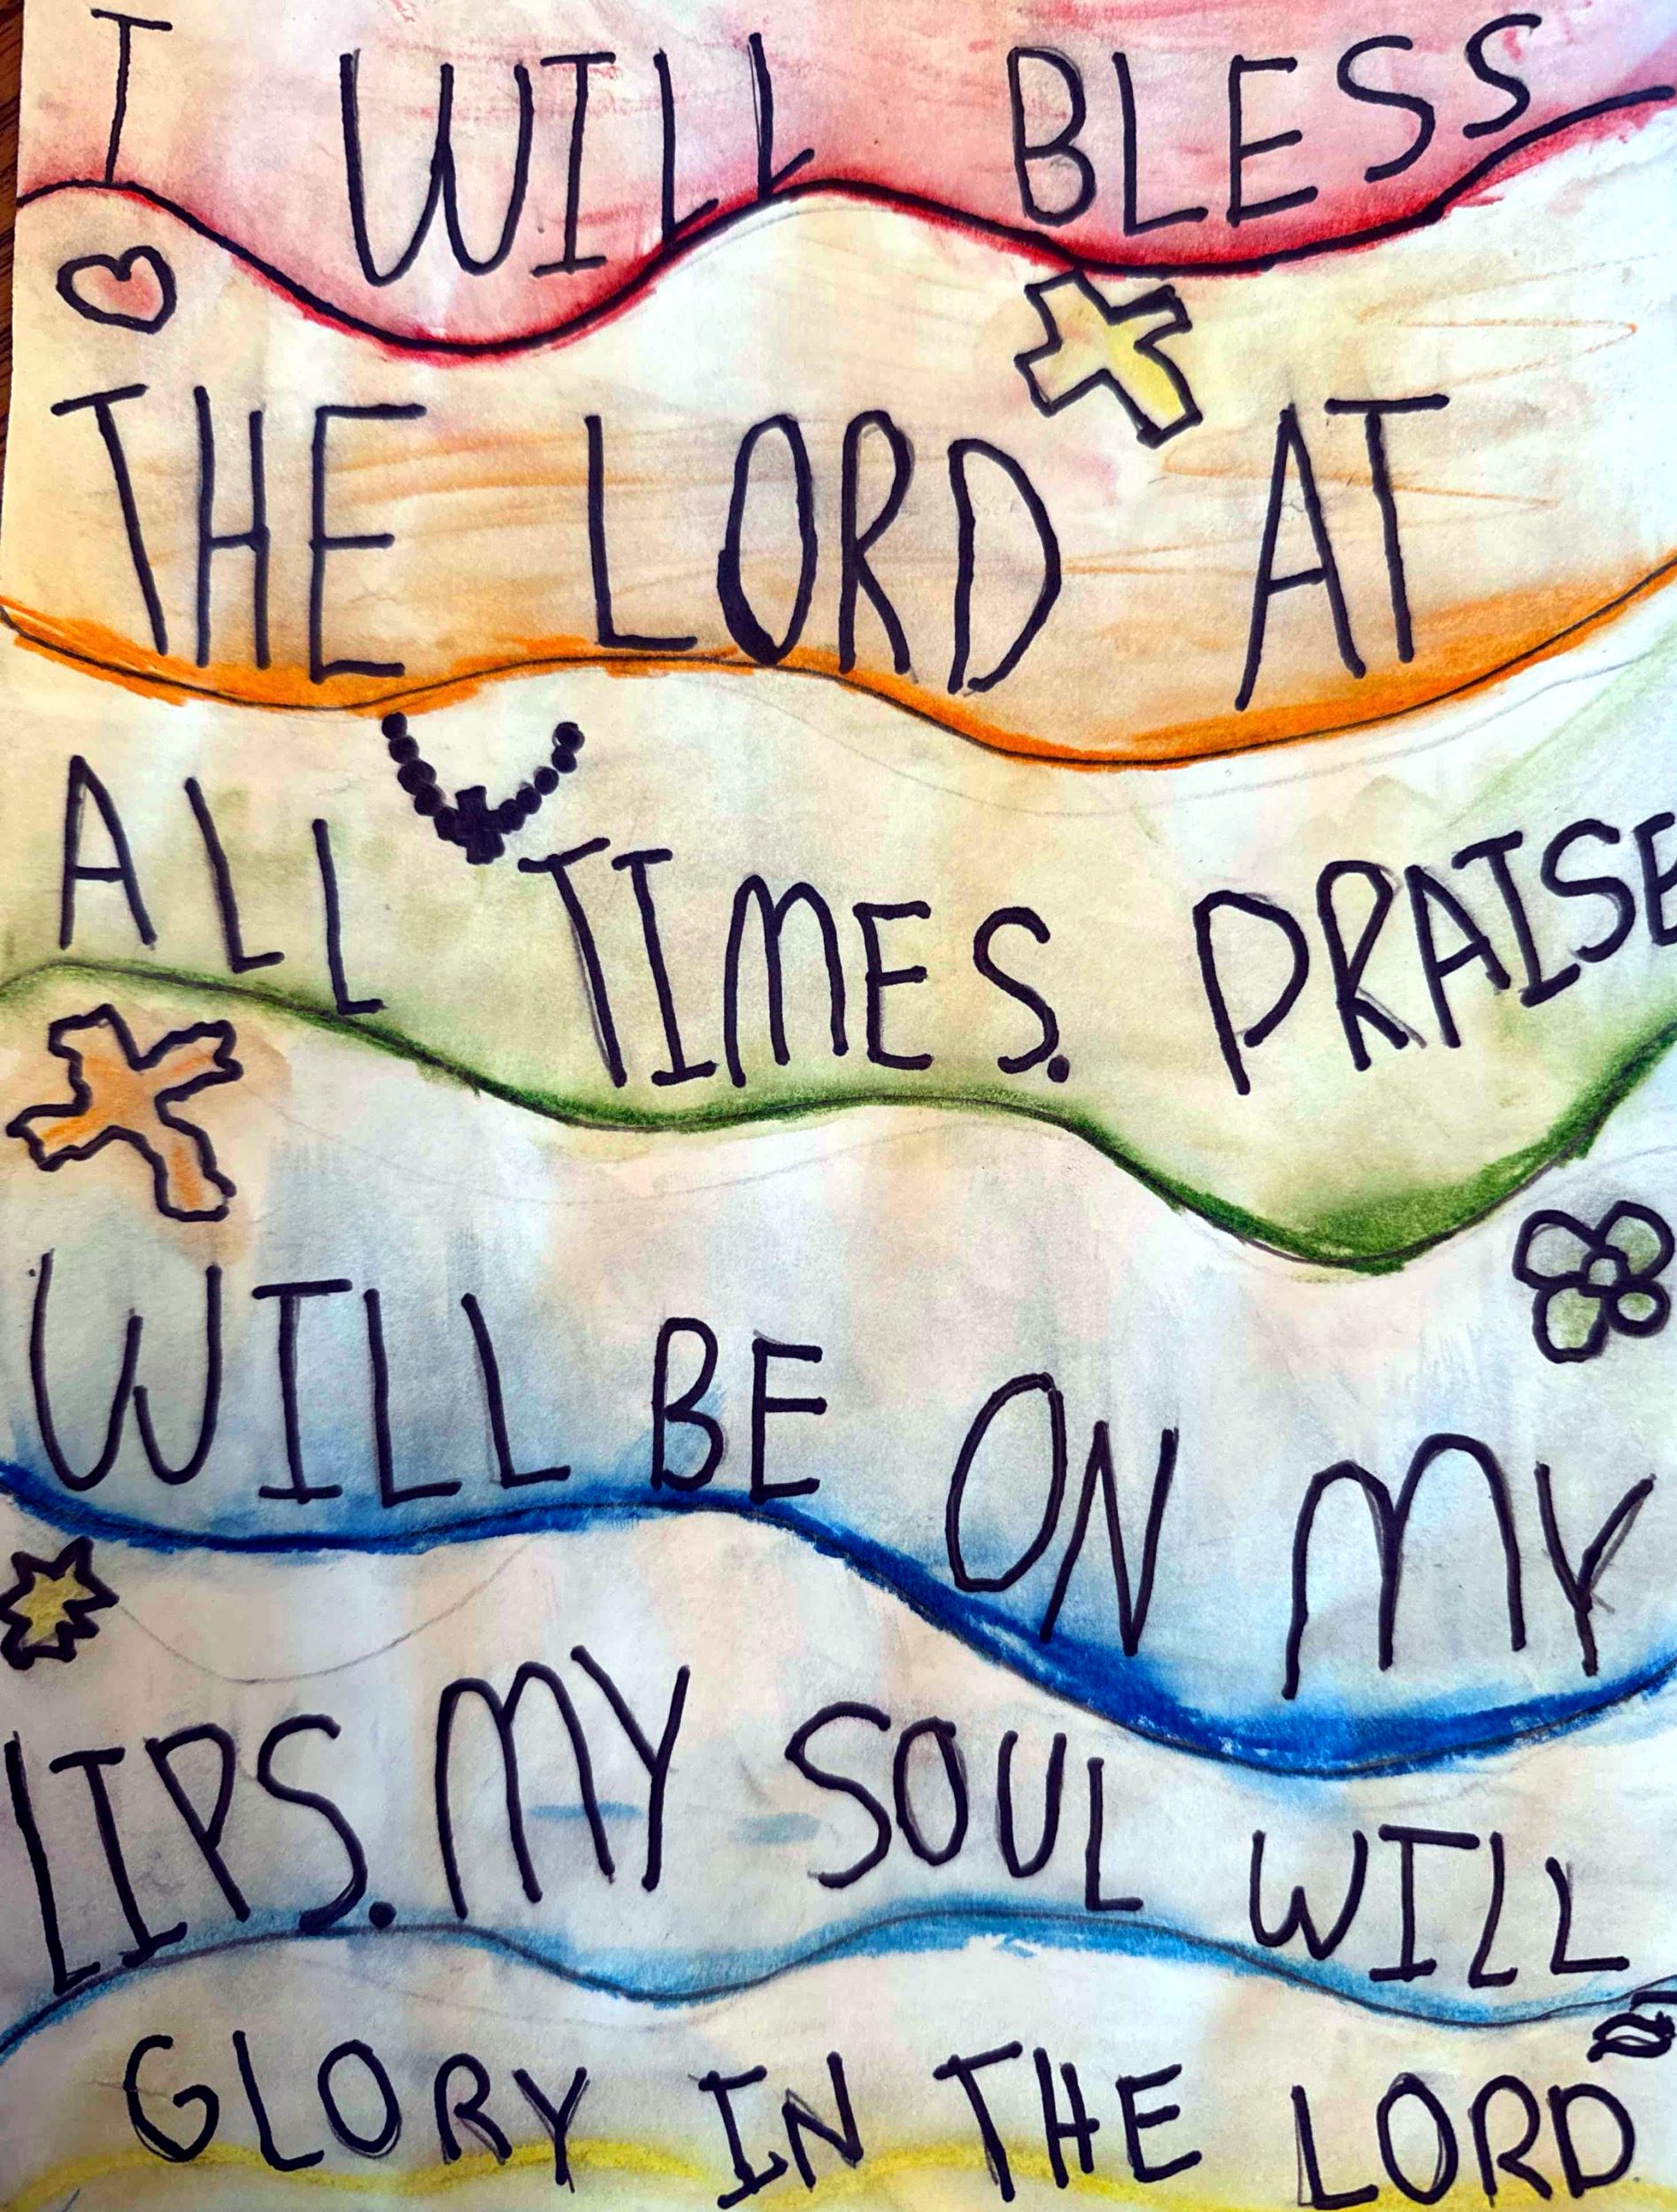 I WILL BLESS
THE LORD AT
ALL TIMES. PRAISE
WILL BE ON MY
LIPS. MY SOUL WILL
GLORY IN THE LORD